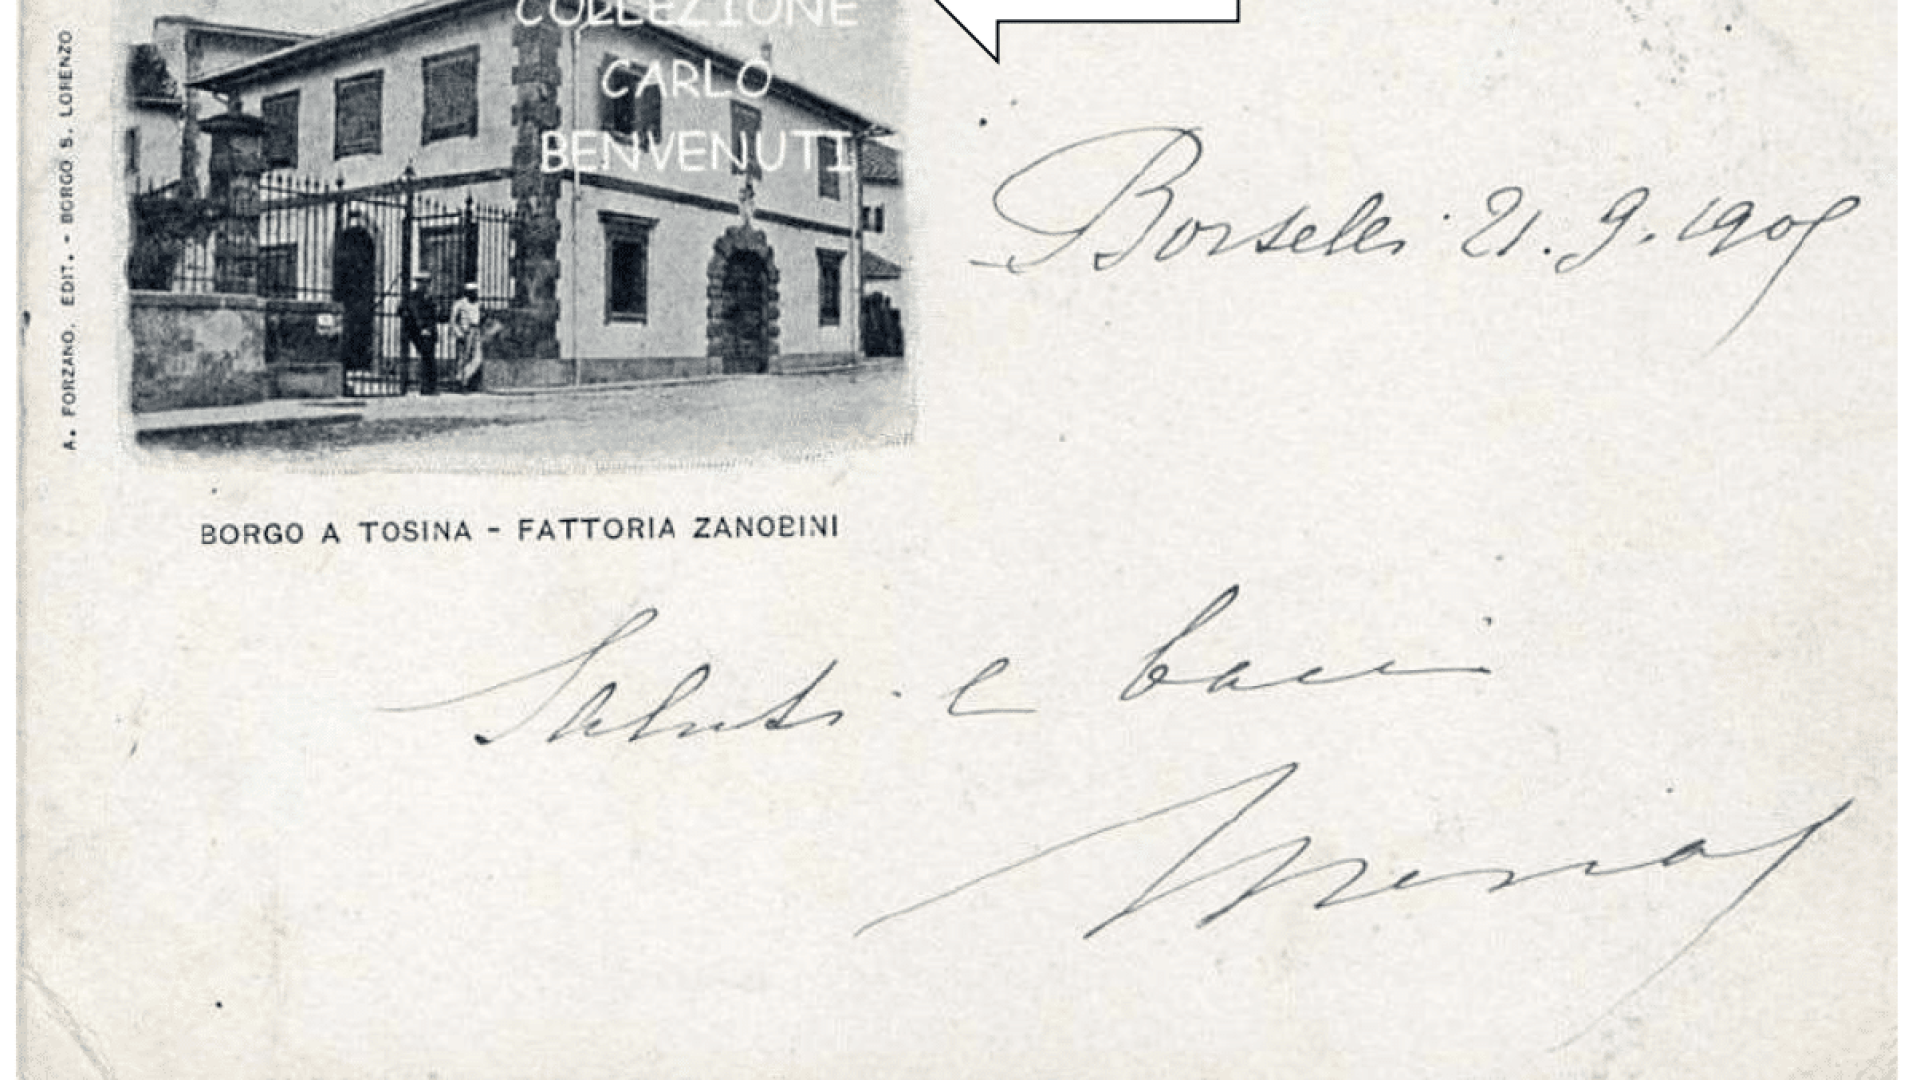 COLLEZIONE
CARLO
BENVENUTI
A. FORZANO, EDIT. - BORGO S. LORENZO
Borselli 21.9.1905
BORGO A TOSINA - FATTORIA ZANOBINI
Saluti e baci